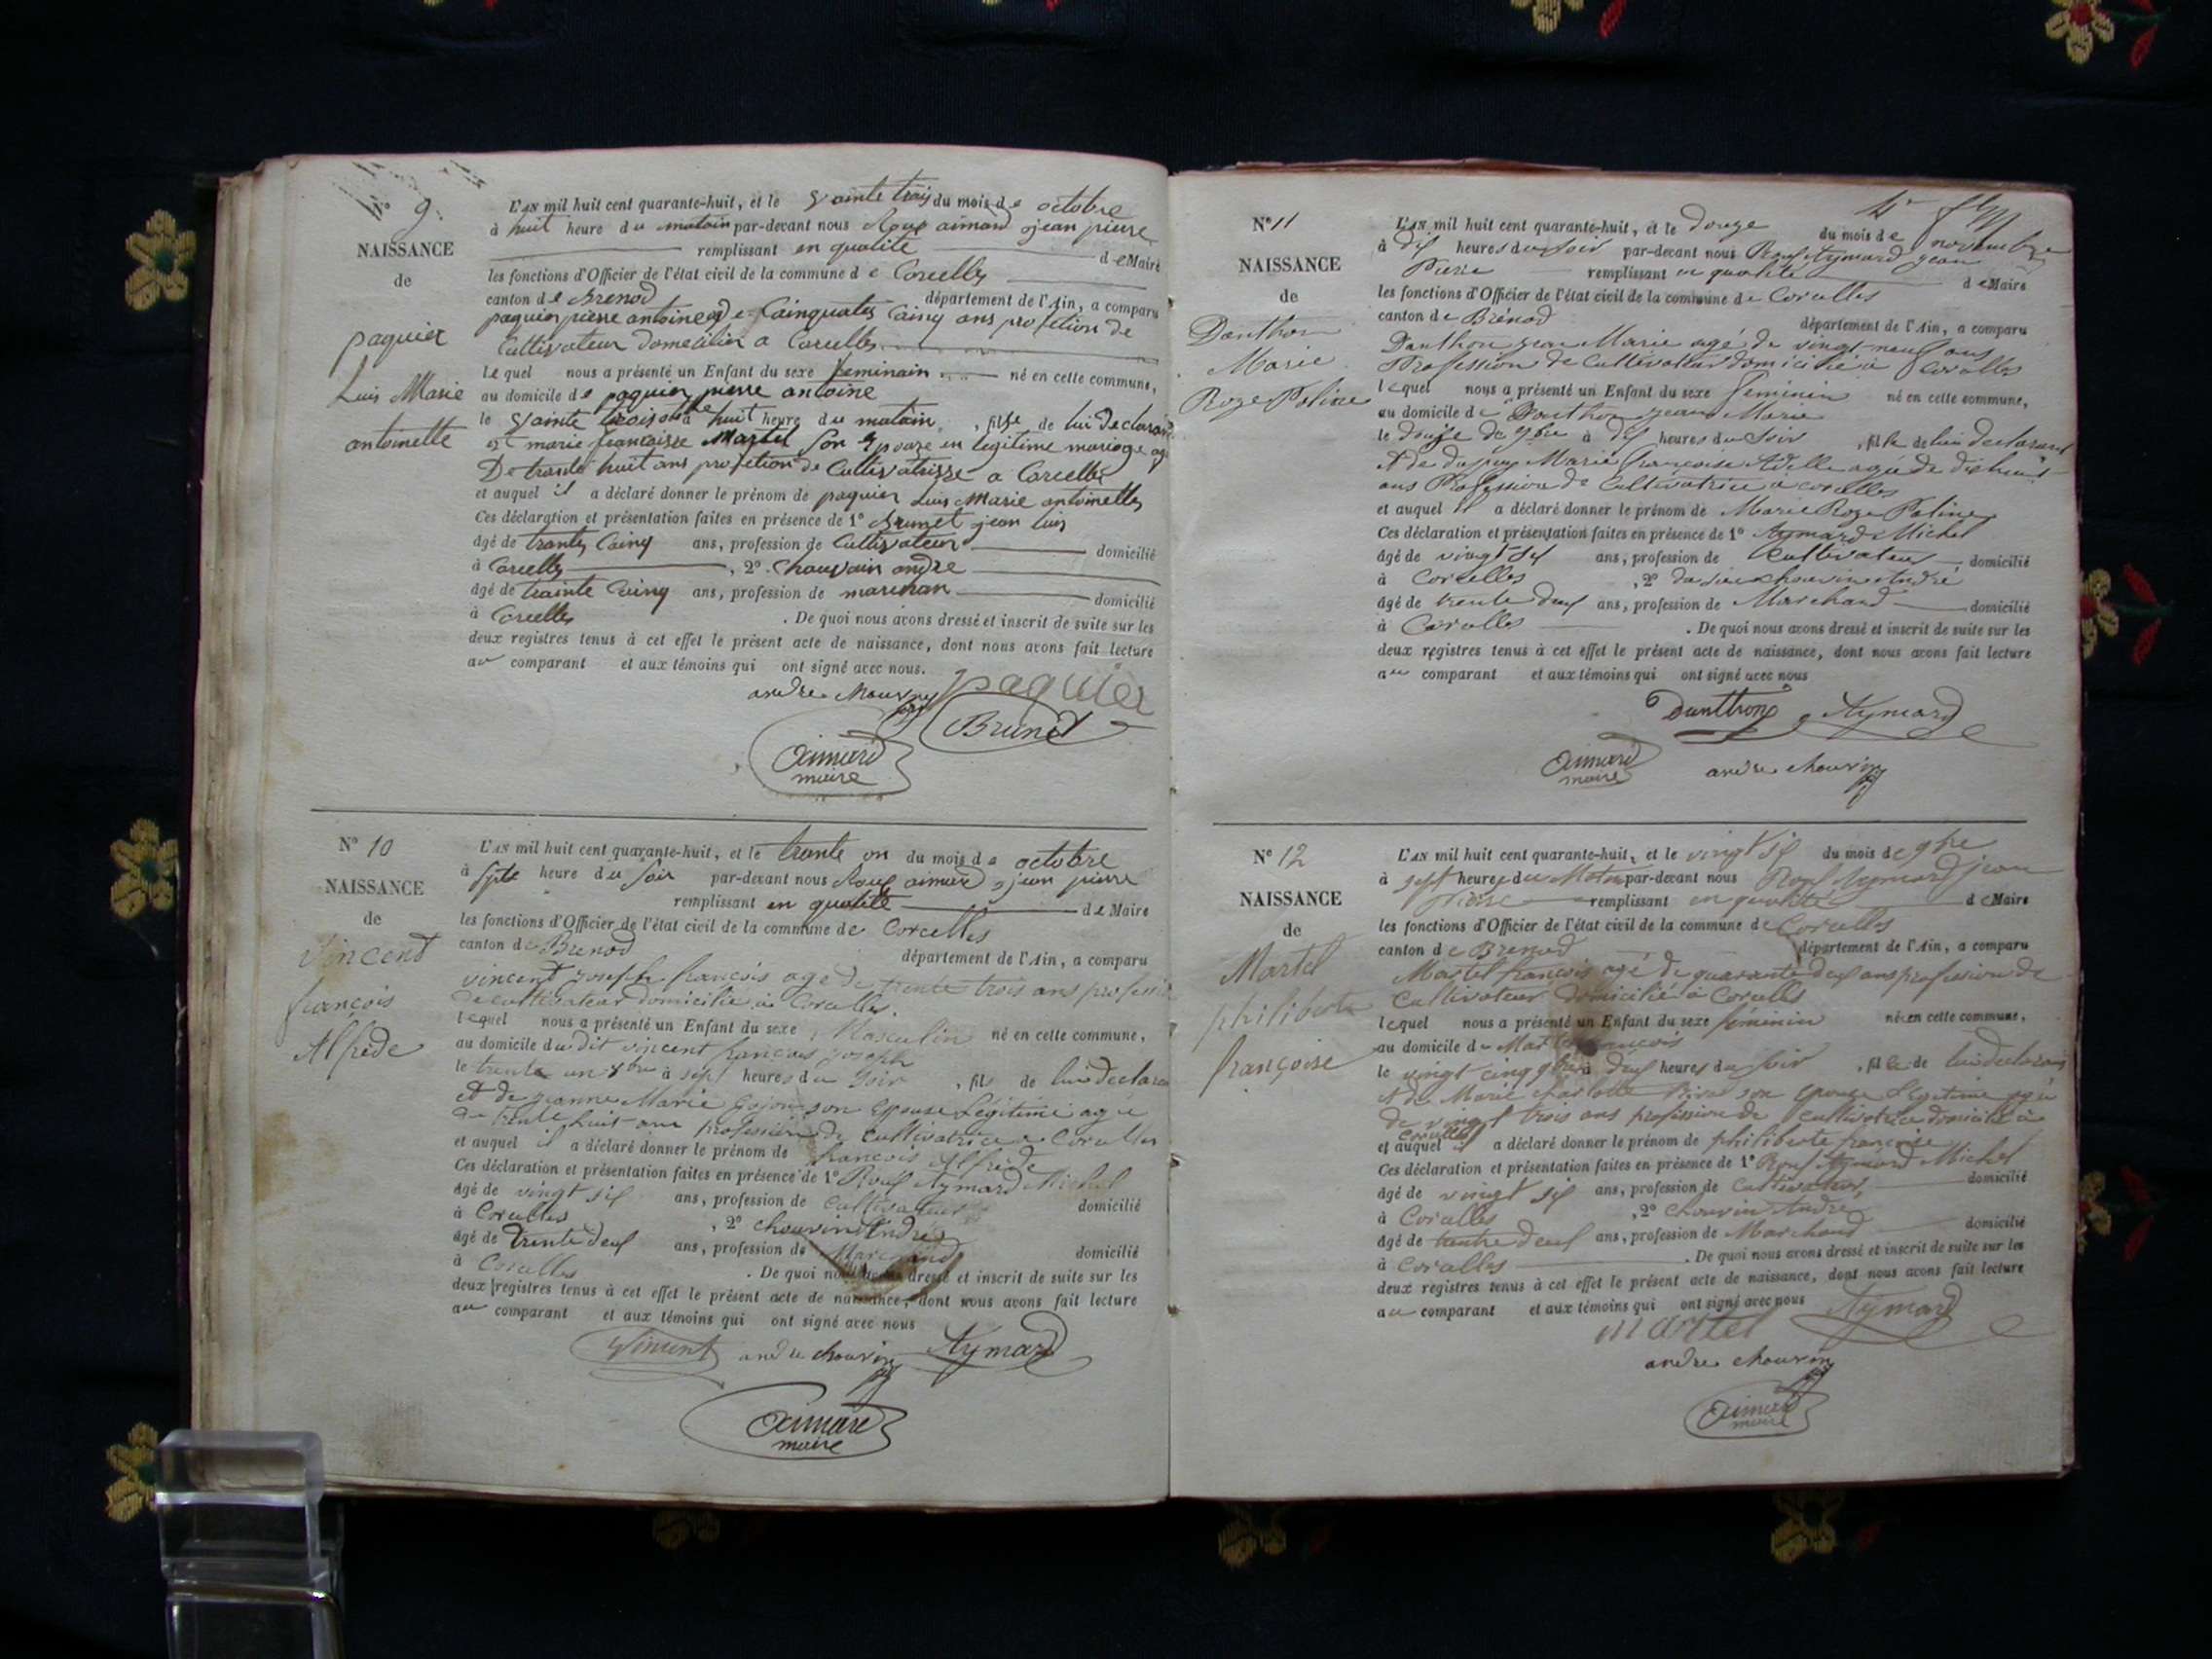 N° 9.
NAISSANCE
de
paquier
Luis Marie
antoinette
L'AN mil huit cent quarante-huit, et le vainte trais du mois de octobre
à huit heure du matain par-devant nous Roux aimard jean pierre
remplissant en qualité de Maire
les fonctions d'Officier de l'état civil de la commune de Corcelles
canton de Brenod département de l'Ain, a comparu
paquier pierre antoine age Cainquates Cainq ans profetion de
Cultivateur domecilier a Corcelles
lequel nous a présenté un Enfant du sexe feminain né en cette commune,
au domicile de paquier pierre antoine
le vainte trois à huit heure du matain, fille de lui Declarant
et marie francoisse Martel son Epouze en legitime mariage age
De trante huit ans profetion de Cultivatrisse a Corcelles
et auquel il a déclaré donner le prénom de paquier Luis Marie antoinette
Ces déclaration et présentation faites en présence de 1° Brunet jean luis
âgé de trante Cainq ans, profession de Cultivateur domicilié
à Corcelles, 2° Chauvain andre
âgé de trainte Cainq ans, profession de marchan domicilié
à Corcelles. De quoi nous avons dressé et inscrit de suite sur les
deux registres tenus à cet effet le présent acte de naissance, dont nous avons fait lecture
au comparant et aux témoins qui ont signé avec nous.
andre chouvin paquier
Brunet
Aimard
maire
N° 10
NAISSANCE
de
Vincent
françois
Alfrede
L'AN mil huit cent quarante-huit, et le trante un du mois de octobre
à septe heure du soir par-devant nous Roux aimard jean pierre
remplissant en qualité de Maire
les fonctions d'Officier de l'état civil de la commune de Corcelles
canton de Brenod département de l'Ain, a comparu
vincent joseph francois age de trente trois ans profession
de cultivateur domicilié à Corcelles.
lequel nous a présenté un Enfant du sexe Masculin né en cette commune,
au domicile du dit vincent francois joseph
le trente un 8bre à sept heures du Soir, fils de lui declarant
et de jeanne Marie Gojon son Epouse Légitime agée
de trente huit ans profession de Cultivatrice a Corcelles
et auquel il a déclaré donner le prénom de francois Alfrede
Ces déclaration et présentation faites en présence de 1° Roux Aymard Michel
âgé de vingt six ans, profession de Cultivateur domicilié
à Corcelles, 2° chouvin Andre
âgé de trente deux ans, profession de Marchand domicilié
à Corcelles. De quoi nous avons dressé et inscrit de suite sur les
deux registres tenus à cet effet le présent acte de naissance, dont nous avons fait lecture
au comparant et aux témoins qui ont signé avec nous
Vincent andre chouvin Aymard
Aimard
maire
N° 11
NAISSANCE
de
Danthon
Marie
Roze Poline
L'AN mil huit cent quarante-huit, et le douze du mois de novembre
à dix heures du soir par-devant nous Roux Aymard jean
Pierre remplissant en qualité de Maire
les fonctions d'Officier de l'état civil de la commune de Corcelles
canton de Brénod département de l'Ain, a comparu
Danthon jean Marie agé de vingt neuf ans
Profession de Cultivateur domicilié à Corcelles
lequel nous a présenté un Enfant du sexe féminin né en cette commune,
au domicile de Danthon jean Marie
le douze de 9bre à dix heures du Soir, fille de lui declarant
et de dupuy Marie francoise Adelle agée de dixhuit
ans Profession de Cultivatrice a corcelles
et auquel il a déclaré donner le prénom de Marie Roze Poline
Ces déclaration et présentation faites en présence de 1° Aymard Michel
âgé de vingt six ans, profession de Cultivateur domicilié
à Corcelles, 2° chouvin André
âgé de trente deux ans, profession de Marchand domicilié
à Corcelles. De quoi nous avons dressé et inscrit de suite sur les
deux registres tenus à cet effet le présent acte de naissance, dont nous avons fait lecture
au comparant et aux témoins qui ont signé avec nous
Dantthon Aymard
Aimard
maire
andre chouvin
N° 12
NAISSANCE
de
Martel
philiberte
françoise
L'AN mil huit cent quarante-huit, et le vingt six du mois de 9bre
à sept heures du Matin par-devant nous Roux Aymard jean
Pierre remplissant en qualité de Maire
les fonctions d'Officier de l'état civil de la commune de Corcelles
canton de Brenod département de l'Ain, a comparu
Martel françois agé de quarante deux ans profession de
Cultivateur domicilié à Corcelles
lequel nous a présenté un Enfant du sexe féminin né en cette commune,
au domicile de Martel françois
le vingt cinq 9bre à deux heures du soir, fille de lui declarant
et de Marie charlotte son epouse Legitime agée
de vingt trois ans profession de Cultivatrice domicilié à
Corcelles
et auquel il a déclaré donner le prénom de philiberte françoise
Ces déclaration et présentation faites en présence de 1° Roux Aymard Michel
âgé de vingt six ans, profession de Cultivateur, domicilié
à Corcelles, 2° Chouvin Andre
âgé de trentre deux ans, profession de Marchand domicilié
à Corcelles. De quoi nous avons dressé et inscrit de suite sur les
deux registres tenus à cet effet le présent acte de naissance, dont nous avons fait lecture
au comparant et aux témoins qui ont signé avec nous
martel Aymard
andre chouvin
Aimard
maire